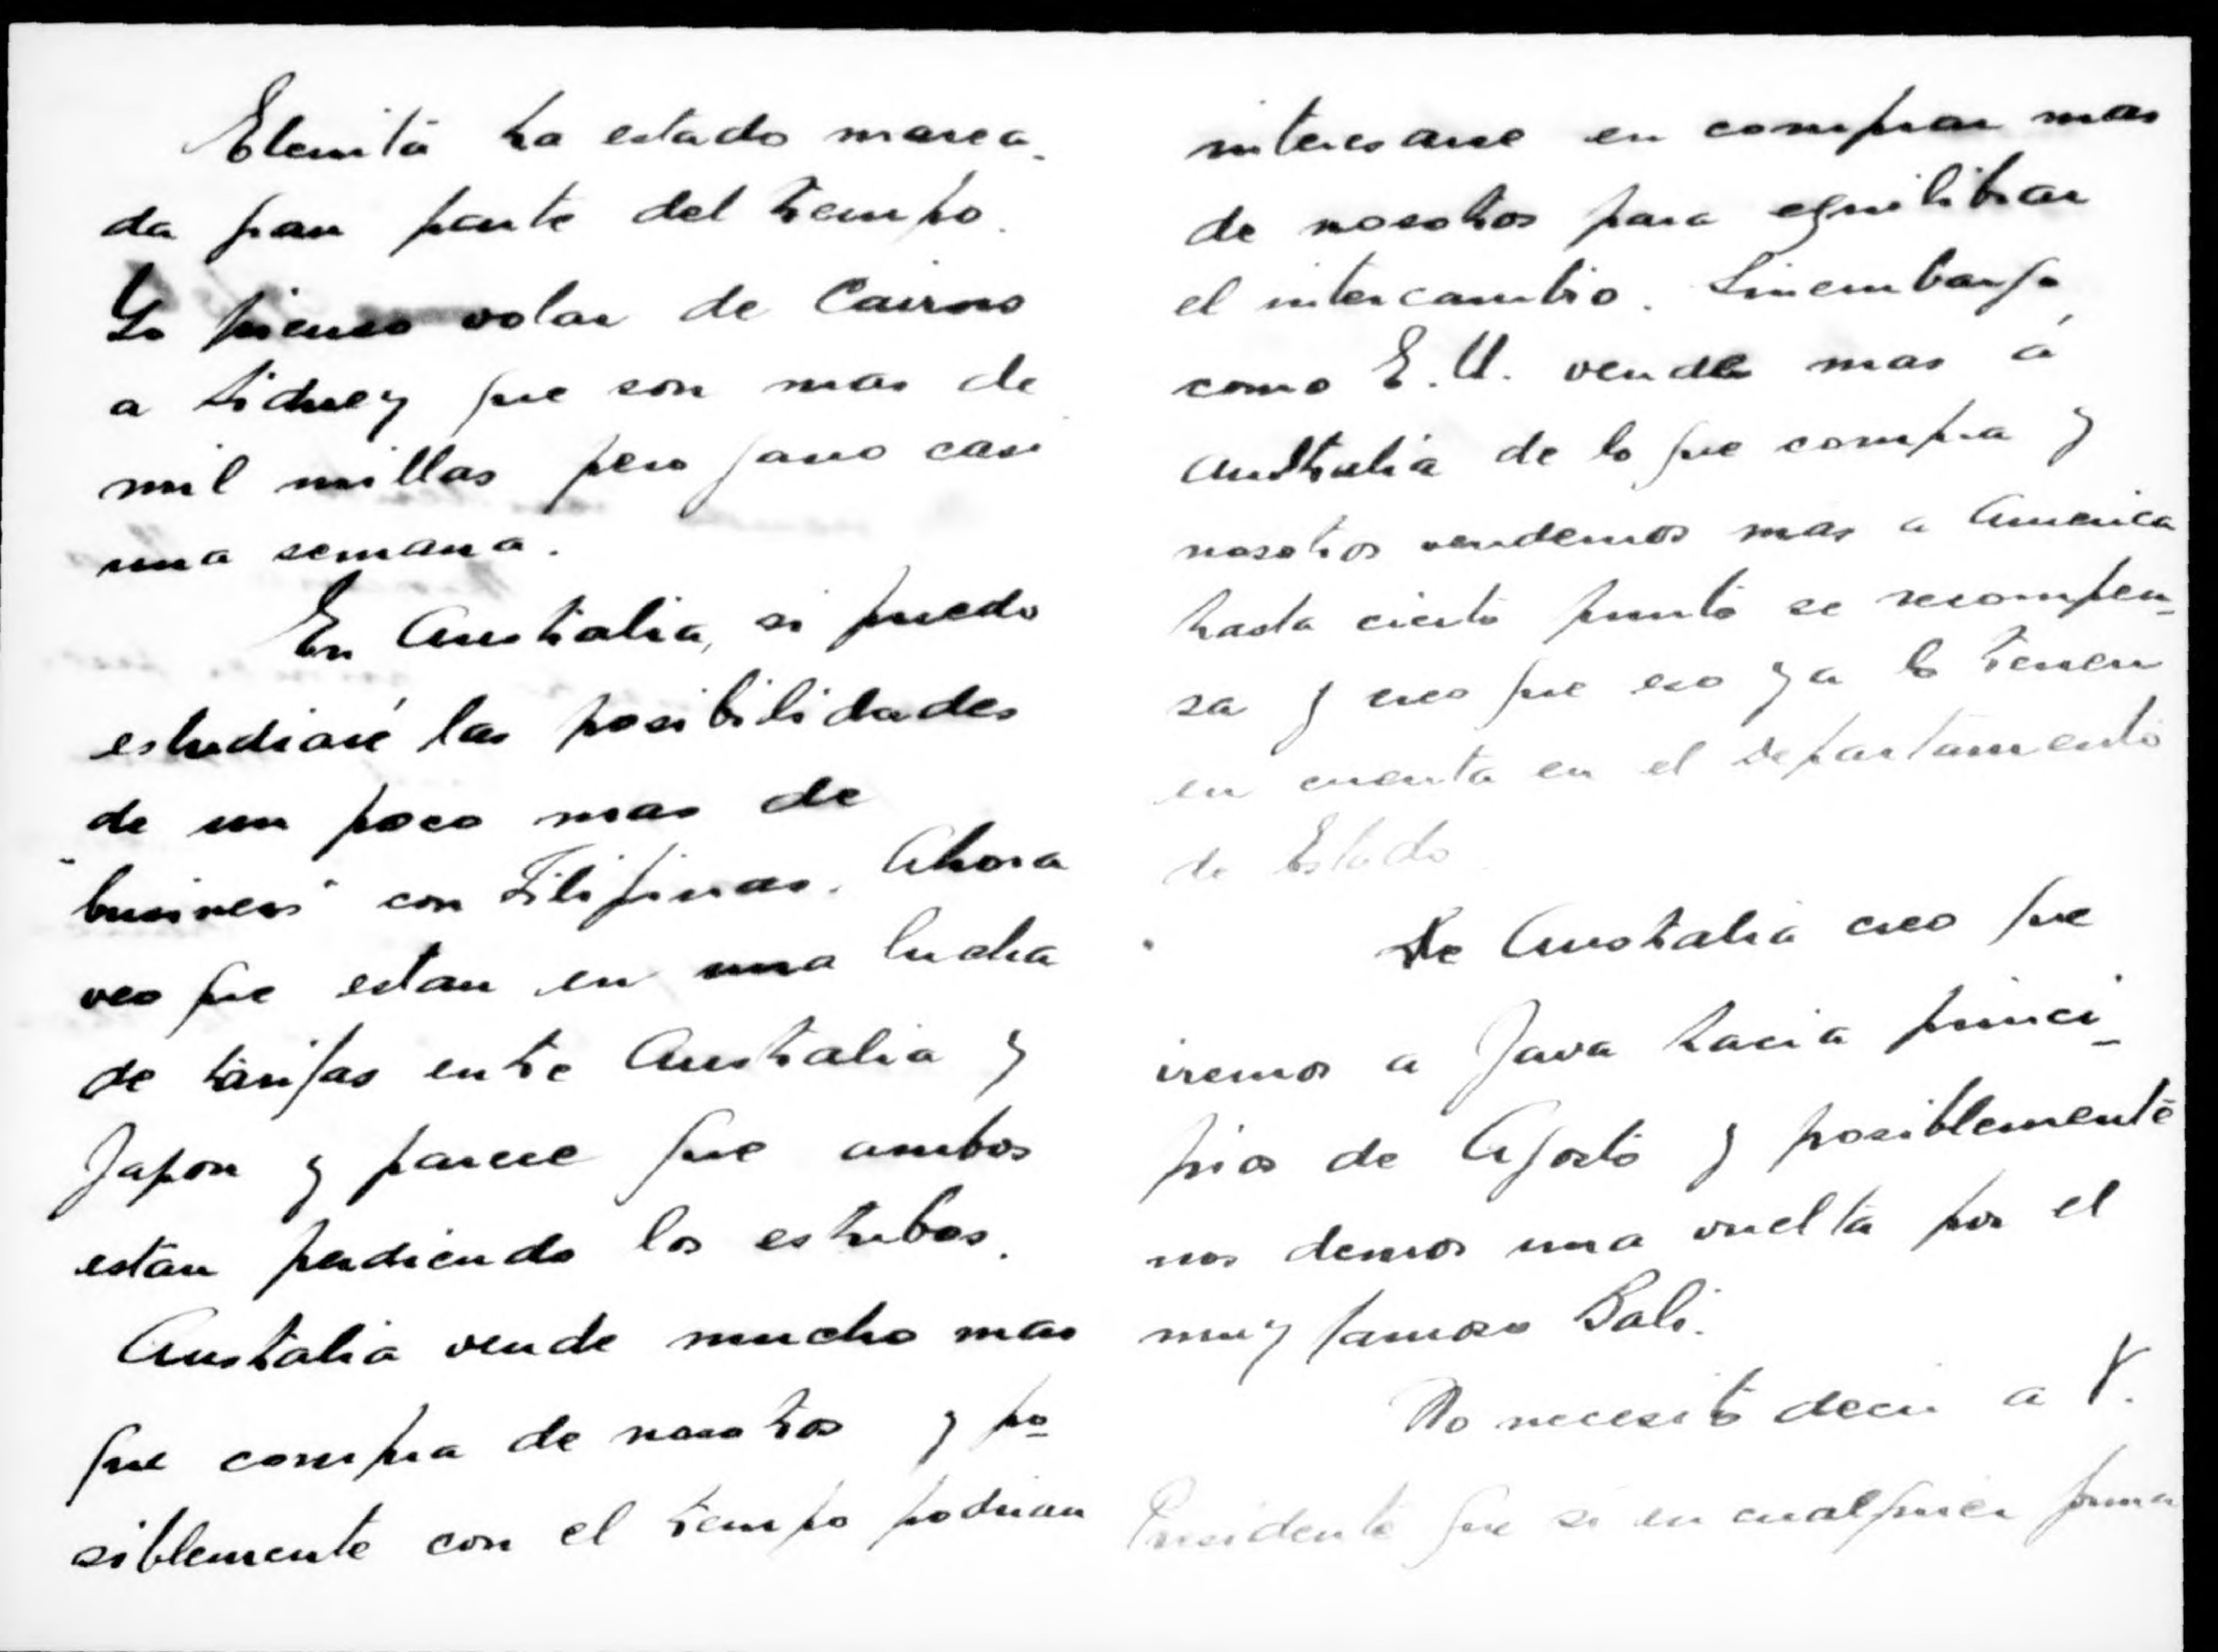 Elenita ha estado marea-
da gran parte del tiempo.
Yo pienso volar de Cairns
a Sidney que son mas de
mil millas pero gano casi
una semana.
En Australia, si puedo
estudiaré las posibilidades
de un poco mas de
"business" con Filipinas. Ahora
veo que estan en una lucha
de tarifas entre Australia y
Japon y parece que ambos
estan perdiendo los estribos.
Australia vende mucho mas
que compra de nosotros y po-
siblemente con el tiempo podrian
interesarse en comprar mas
de nosotros para equilibrar
el intercambio. Sinembargo,
como E.U. vende mas á
Australia de lo que compra y
nosotros vendemos mas a America
hasta cierto punto se recompen-
sa y creo que eso ya lo tienen
en cuenta en el Departamento
de Estado.
De Australia creo que
iremos a Java hacia princi-
pios de Agosto y posiblemente
nos demos una vuelta por el
muy famoso Bali.
No necesito decir a V.
Presidente que si en cualquier forma